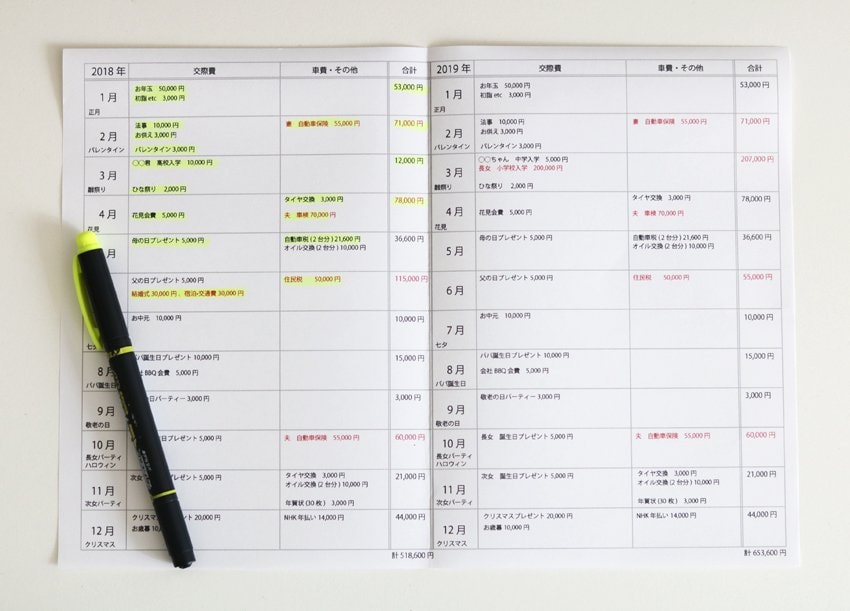 2018 年 交際費 車費・その他 合計
1 月 お年玉 50,000 円 53,000 円
初詣 etc 3,000 円
正月
2 月 法事 10,000 円 妻 自動車保険 55,000 円 71,000 円
お供え 3,000 円
バレンタイン バレンタイン 3,000 円
3 月 〇〇君 高校入学 10,000 円 12,000 円
雛祭り ひな祭り 2,000 円
4 月 タイヤ交換 3,000 円 78,000 円
花見会費 5,000 円 夫 車検 70,000 円
花見
月 母の日プレゼント 5,000 円 自動車税 (2 台分) 21,600 円 36,600 円
オイル交換 (2 台分) 10,000 円
父の日プレゼント 5,000 円 住民税 50,000 円 115,000 円
結婚式 30,000 円 、宿泊・交通費 30,000 円
お中元 10,000 円 10,000 円
七夕
8 パパ誕生日プレゼント 10,000 円 15,000 円
会社 BBQ 会費 5,000 円
パパ誕生日
9 月 日パーティー 3,000 円 3,000 円
敬老の日
10 月 日プレゼント 5,000 円 夫 自動車保険 55,000 円 60,000 円
長女パーティ
ハロウィン
11 月 次女 日プレゼント 5,000 円 タイヤ交換 3,000 円 21,000 円
オイル交換 (2 台分) 10,000 円
次女パーティ 年賀状 (30 枚) 3,000 円
12 月 クリスマスプレゼント 20,000 円 NHK 年払い 14,000 円 44,000 円
お歳暮 10,
クリスマス
計 518,600 円
2019 年 交際費 車費・その他 合計
1 月 お年玉 50,000 円 53,000 円
初詣 etc 3,000 円
正月
2 月 法事 10,000 円 妻 自動車保険 55,000 円 71,000 円
お供え 3,000 円
バレンタイン バレンタイン 3,000 円
3 月 〇〇ちゃん 中学入学 5,000 円 207,000 円
長女 小学校入学 200,000 円
雛祭り ひな祭り 2,000 円
4 月 タイヤ交換 3,000 円 78,000 円
花見会費 5,000 円 夫 車検 70,000 円
花見
5 月 母の日プレゼント 5,000 円 自動車税 (2 台分) 21,600 円 36,600 円
オイル交換 (2 台分) 10,000 円
6 月 父の日プレゼント 5,000 円 住民税 50,000 円 55,000 円
7 月 お中元 10,000 円 10,000 円
七夕
8 月 パパ誕生日プレゼント 10,000 円 15,000 円
会社 BBQ 会費 5,000 円
パパ誕生日
9 月 敬老の日パーティー 3,000 円 3,000 円
敬老の日
10 月 長女 誕生日プレゼント 5,000 円 夫 自動車保険 55,000 円 60,000 円
長女パーティ
ハロウィン
11 月 次女 誕生日プレゼント 5,000 円 タイヤ交換 3,000 円 21,000 円
オイル交換 (2 台分) 10,000 円
次女パーティ 年賀状 (30 枚) 3,000 円
12 月 クリスマスプレゼント 20,000 円 NHK 年払い 14,000 円 44,000 円
お歳暮 10,000 円
クリスマス
計 653,600 円